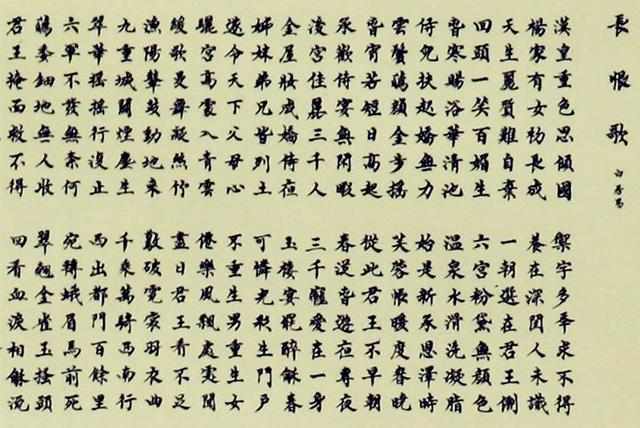 長恨歌
白居易
漢皇重色思傾國 御宇多年求不得
楊家有女初長成 養在深閨人未識
天生麗質難自棄 一朝選在君王側
回頭一笑百媚生 六宮粉黛無顏色
春寒賜浴華清池 溫泉水滑洗凝脂
侍兒扶起嬌無力 始是新承恩澤時
雲鬢花顏金步搖 芙蓉帳暖度春宵
春宵苦短日高起 從此君王不早朝
承歡侍宴無閒暇 春從春遊夜專夜
後宮佳麗三千人 三千寵愛在一身
金屋妝成嬌侍夜 玉樓宴罷醉和春
姊妹弟兄皆列土 可憐光彩生門戶
遂令天下父母心 不重生男重生女
驪宮高處入青雲 仙樂風飄處處聞
緩歌慢舞凝絲竹 盡日君王看不足
漁陽鼙鼓動地來 驚破霓裳羽衣曲
九重城闕煙塵生 千乘萬騎西南行
翠華搖搖行復止 西出都門百餘里
六軍不發無奈何 宛轉蛾眉馬前死
花鈿委地無人收 翠翹金雀玉搔頭
君王掩面救不得 回看血淚相和流